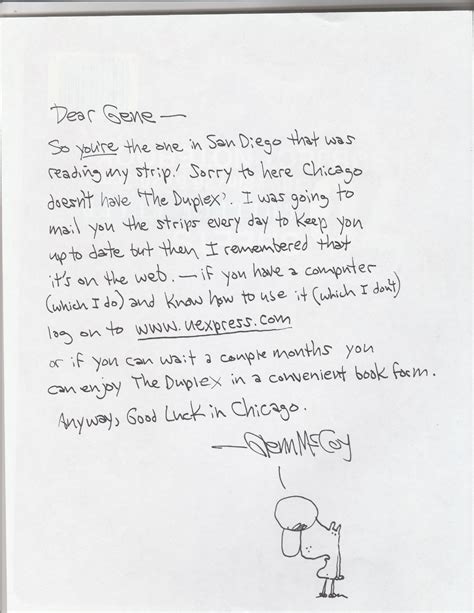 Dear Gene —
So you're the one in San Diego that was
reading my strip! Sorry to here Chicago
doesn't have 'The Duplex'. I was going to
mail you the strips every day to keep you
up to date but then I remembered that
it's on the web. — if you have a computer
(which I do) and know how to use it (which I don't)
log on to www.uexpress.com
or if you can wait a couple months you
can enjoy The Duplex in a convenient book form.
Anyway, Good Luck in Chicago.
— Glenn McCoy